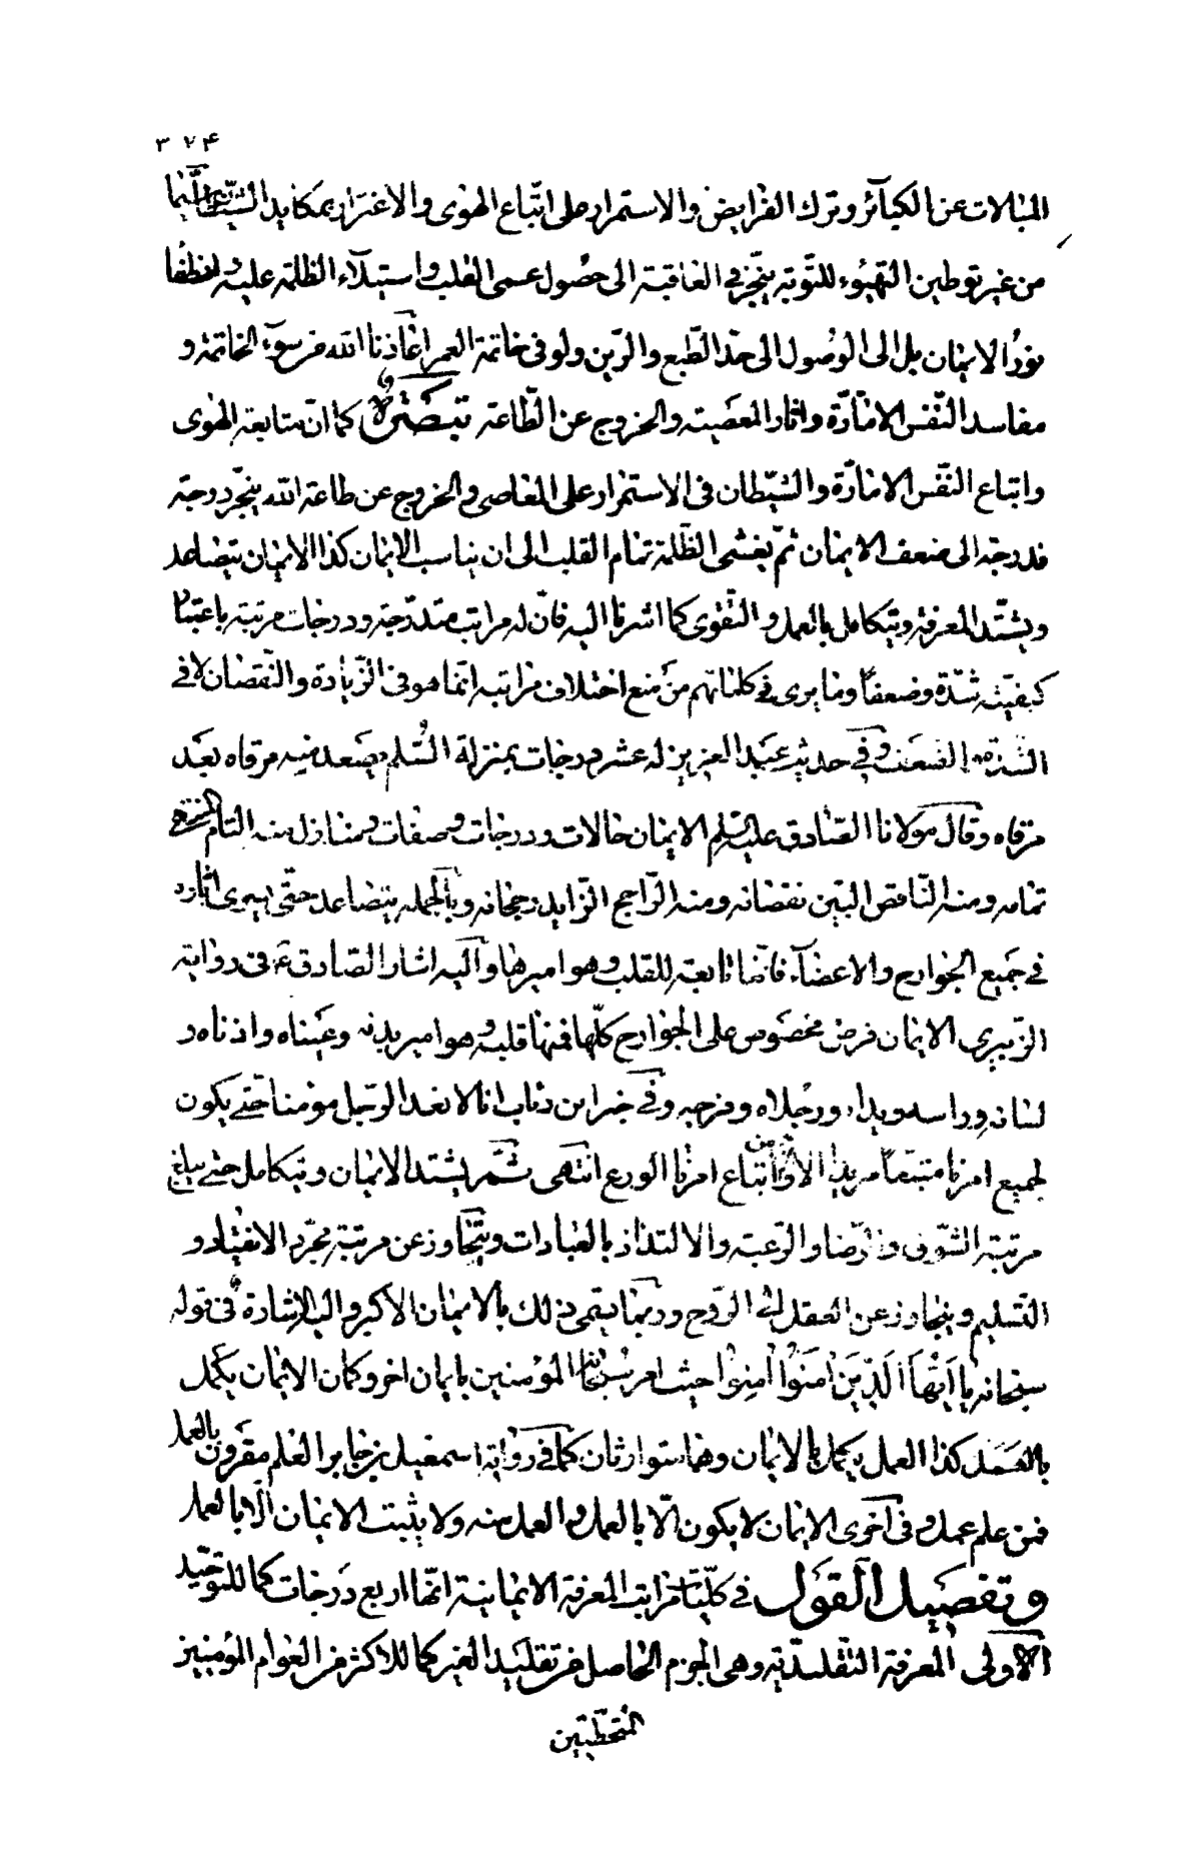 ۳۷۴
المبالات عن الكبآئر وترك الفرايض والاستمرار على اتّباع الهوى والاغترار بمكايد الشّيطان
من غير توطين التهيّوء للتّوبة ينجّر فى العاقبة الى حصول عمى القلب واستيلآء الظلمة عليه ولخطفا
نورُ الايمان بل الى الوصول الى حدّ الطّبع والرّين ولو فى خاتمة العمر اعاذنا الله من سوء الخاتمة و
مفاسد النّفس الامّارّة واثار المعصية والخروج عن الطّاعة تبصرة كما انّ متابعة الهوى
واتباع النّفس الامّارّة والشّيطان فى الاستمرار على المعاصى والخروج عن طاعة الله ينجّر درجة
فدرجة الى ضعف الايمان ثمّ يغشى الظّلمة تمام القلب الى ان يناسب الايمان كذا الايمان يتصاعد
ويشتّد المعرفة ويتكامل بالعمل و التّقوى كما اشرنا اليه فانّ له مراتب متدرّجة ودرجات مرتبة باعتبار
كيفيّته شدّة وضعفاً وما يرى فى كلماتهم من منع اختلاف مراتبه انّما هو فى الزّيادة والنّقصان لا فى
الشدّة والضعف وفى حديث عبد العزيز له عشر درجات بمنزلة السّلم يصعد منه مرقاه بعَد
مرقاه وقال مولانا الصّادق عليه السّلم الايمان حالات ودرجات وصفات ومنازل منه التام المنتهى
تمامه ومنه النّاقص البيّن نقصانه ومنه الرّاجح الزّايد رجحانه وبالجمله يتصاعد حتّى يسرى اثاره
فى جميع الجوارح والاعضآء فانّها تابعة للقلب وهو اميرها واليه اشار الصّادق ع فى رواية
الزّبيرى الايمان فرض مخصوص على الجوارح كلّها فمنها قلبه وهو امير بدنه وعيناه واذناه و
لسانه وراسه ويداه ورجلاه وفرجه وفى خبر ابن رئاب انا لا نعد الرّجل مؤمنا حتّى يكون
لجميع امرنا متبعاً مريداً الا وان من اتّباع امرنا الورع انتهى ثمّ يشتد الايمان ويتكامل حتى يبلغ
مرتبة الشّوق والرّضا والرّغبة والالتذاذ بالعبادات ويتجاوز عن مرتبة مجرّد الانقياد و
التّسليم ويتجاوز عن العقل الى الرّوح وربّما يسّمى ذلك بالايمان الاكبر واليه الاشارة فى قوله
سبحانه يا ايّها الّذين امَنوُا امِنوا حيث امر سبحانه المؤمنين بايمان اخر وكمان الايمان يكمل
بالعمل كذا العمل يكمل بالايمان وهما متوارثان كما فى رواية اسمعيل بن جابر العلم مقرون بالعمل
فمن علم عمل وفى اخرى الايمان لا يكون الّا بالعمل والعمل منه ولا يثبت الايمان الّا بالعمل
وتفصيل القول فى كلّيّات مراتب المعرفة الايمانية انّها اربع درجات كما للتوحّيد
الاولى المعرفة التّقليديّة وهى الجزم الحاصل من تقليد الغير كما للاكثر من العوام المؤمنين
المتحطّيين